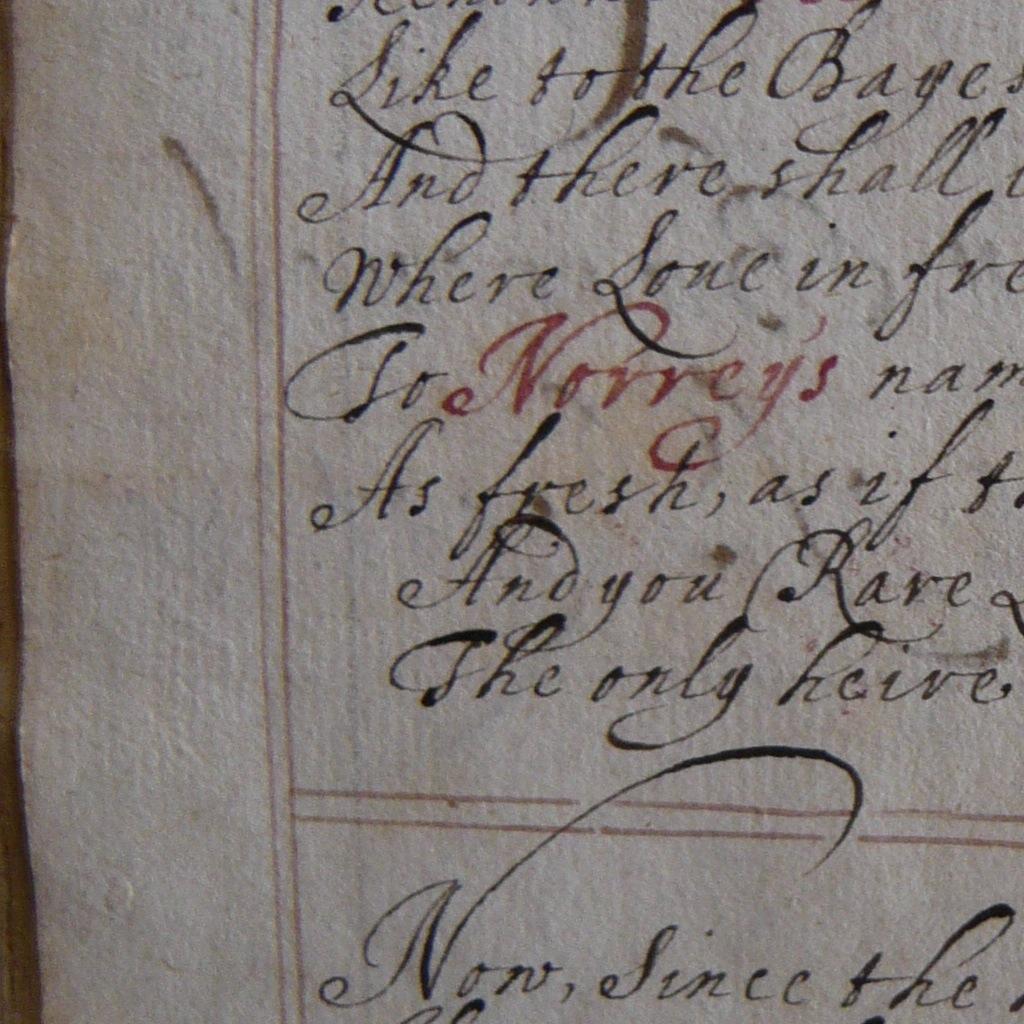 Like to the Bayes
And there shall
Where Loue in fre
To Norreys nam
As fresh, as if th
And you (Rare
The only heire
Now, Since the